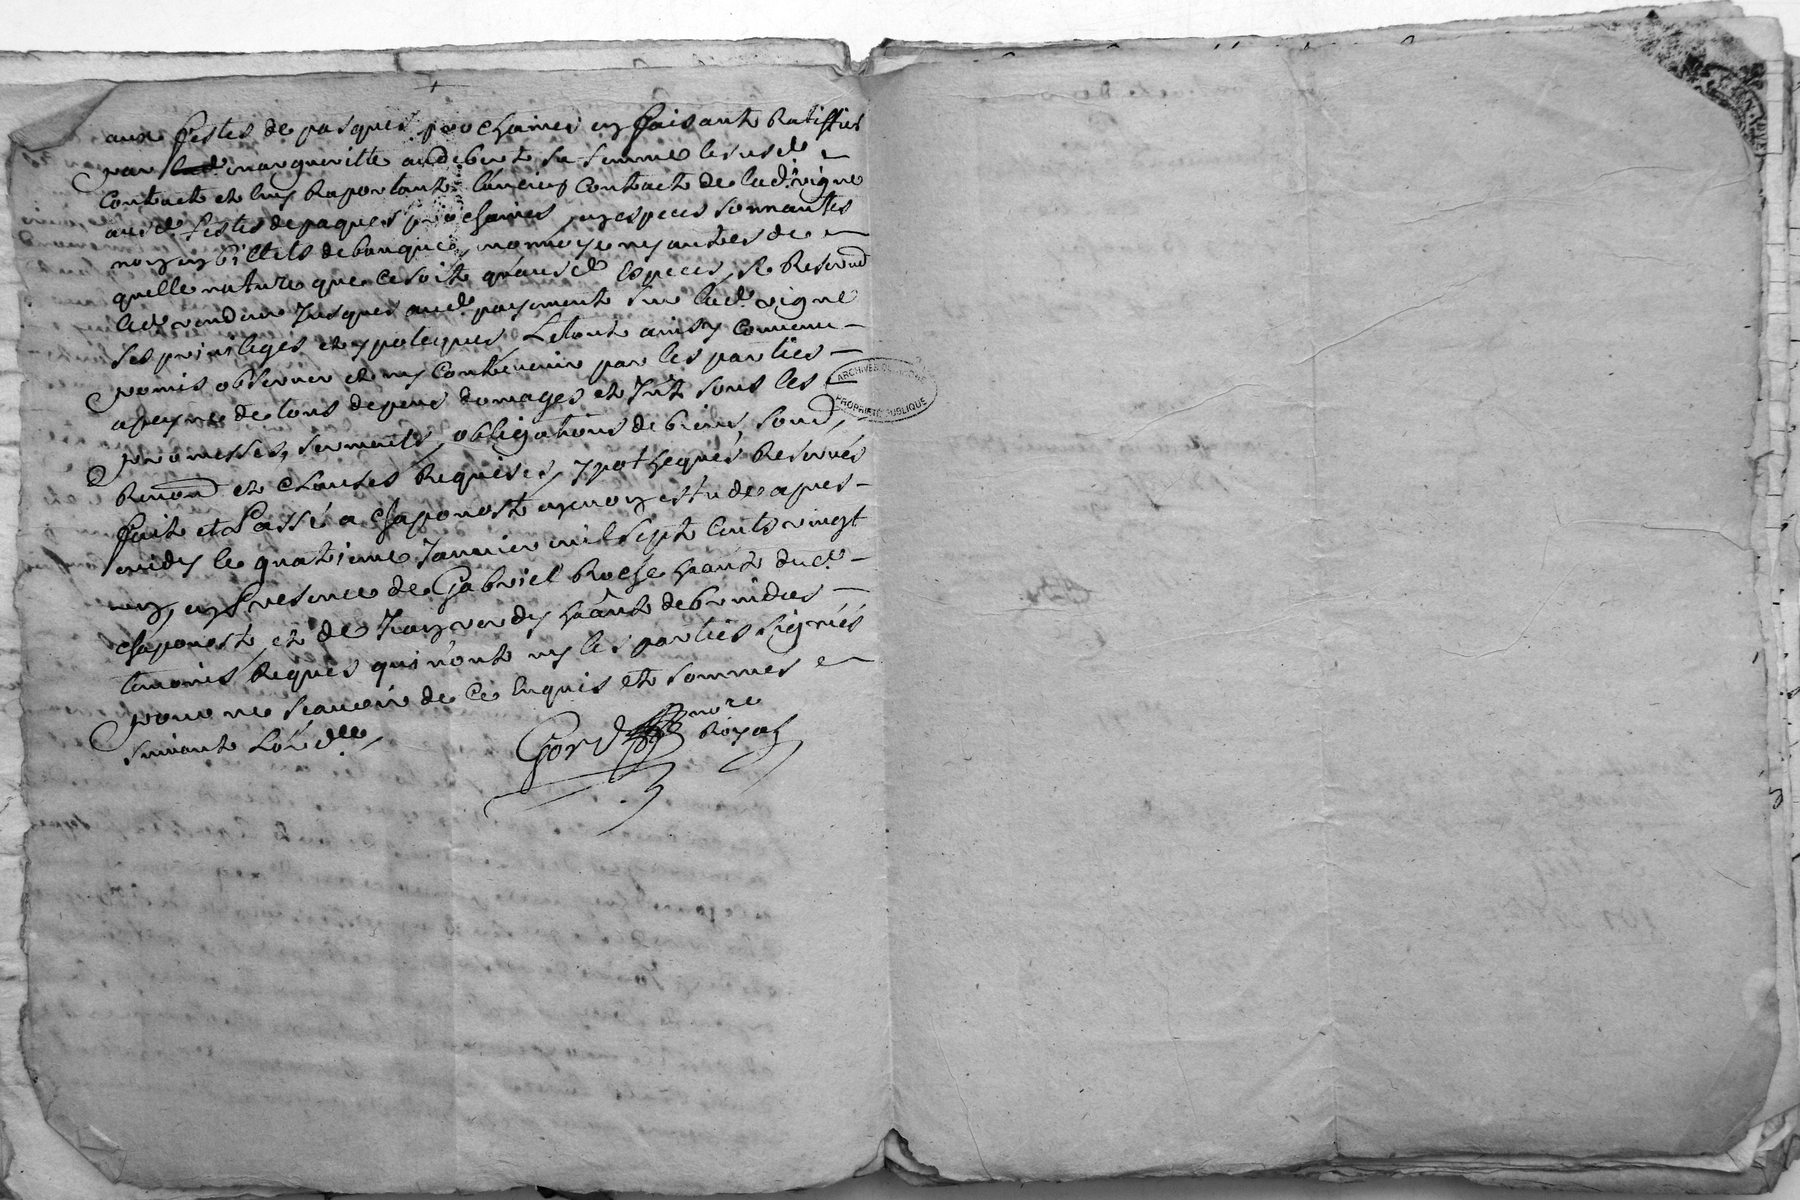 aux festes de pasques prochaines en faisant Ratiffier
par lad margueritte audebert sa femme le susd
Contract et luy Raportant l'ancien Contract de lad. vigne
ausd. festes de paques prochaines, en especes sonnantes
non en billets de banque, monnoye ny autres de
quelle nature que ce soit qu'ausd especes, se Reservant
led. vendeur Jusques aud. payement sur lad. vigne
ses privileges et ypoteques, Le tout ainsy Convenu
promis observer et ny Contrevenir par les parties
a peyne de tous depens domages et Jnt sous les
promesses, serments, obligations de biens, soum,
Renon et Clauses Requises, ypotheques Reservés
fait et Passé a Chaponost en mon estude apres
midy le quatrieme Janvier mil sept Cents vingt
un, en Presence de Gabriel Roche hant dud.
Chaponost, et de Jean hant de Brindas
temoins Requis qui n'ont ny les parties signés
pour ne scavoir de ce Enquis et sommes
suivant L'or.
nore
Royal
ARCHIVES DU RHONE
PROPRIETE PUBLIQUE